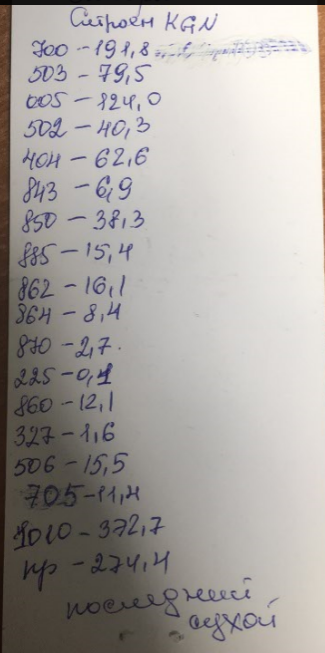 Ситроен KGN
700 - 191,8
503 - 79,5
005 - 124,0
502 - 40,3
404 - 62,6
843 - 6,9
850 - 38,3
885 - 15,4
862 - 16,1
864 - 8,4
870 - 2,7.
225 - 0,1
860 - 12,1
327 - 1,6
506 - 15,5
705 - 11,4
1010 - 372,7
пр - 274,4
последний
сухой